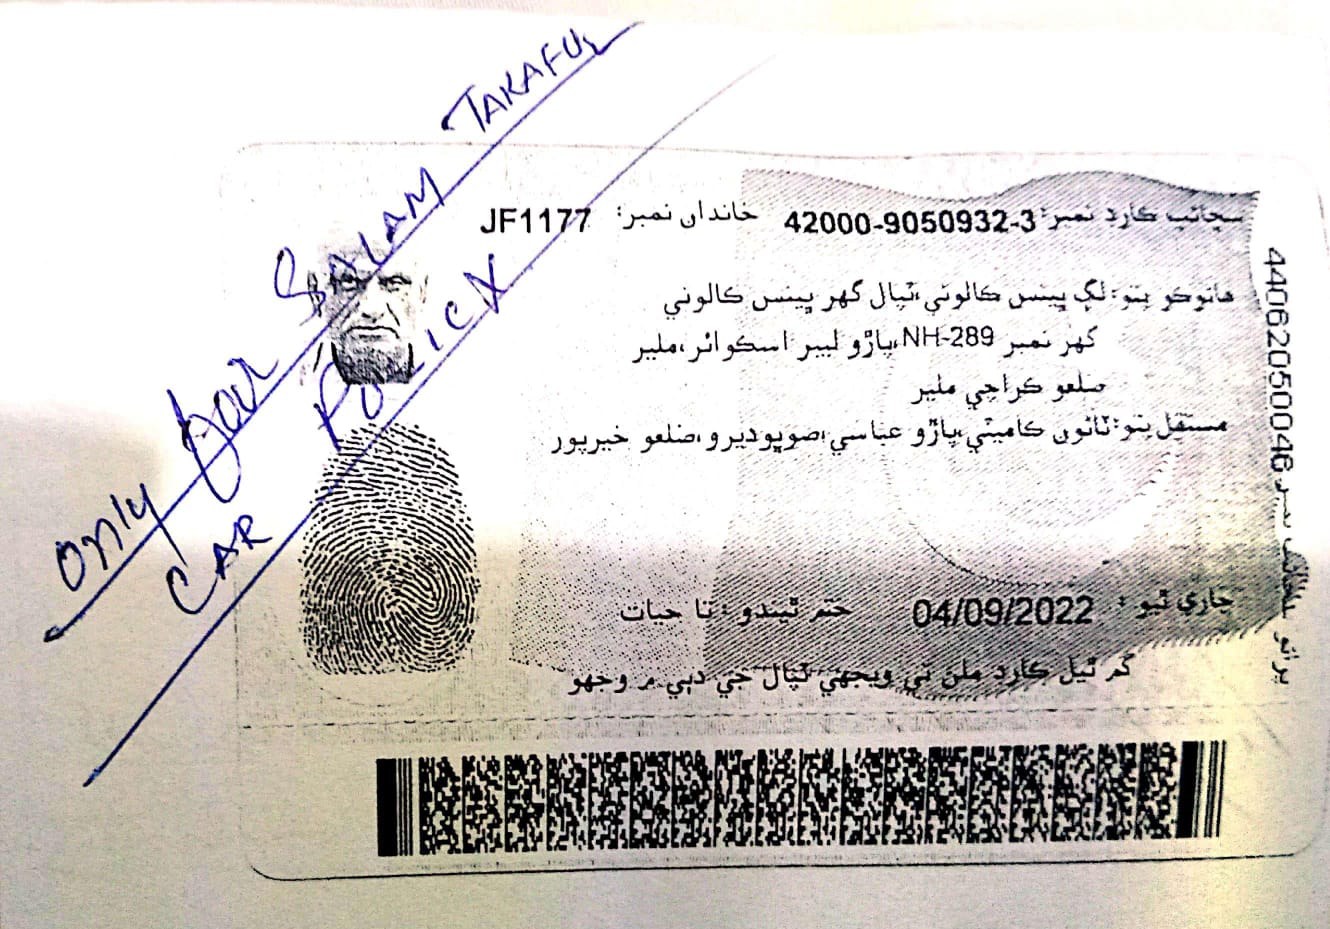 ONLY FOR SALAM TAKAFUL
CAR POLICY
سڃاڻپ ڪارڊ نمبر: 42000-9050932-3 خاندان نمبر: JF1177
هاڻوڪو پتو: لڳ پينس ڪالوني،ٽپال گهر پينس ڪالوني
گهر نمبر NH-289،پاڙو ليبر اسڪوائر،ملير
ضلعو ڪراچي ملير
مستقل پتو: ٽائون ڪاميٽي،پاڙو عباسي،صوڀوديرو،ضلعو خيرپور
جاري ٿيو : 04/09/2022 ختم ٿيندو : تا حيات
گم ٿيل ڪارڊ ملڻ تي ويجهي ٽپال جي دٻي ۾ وجهو
44062050046